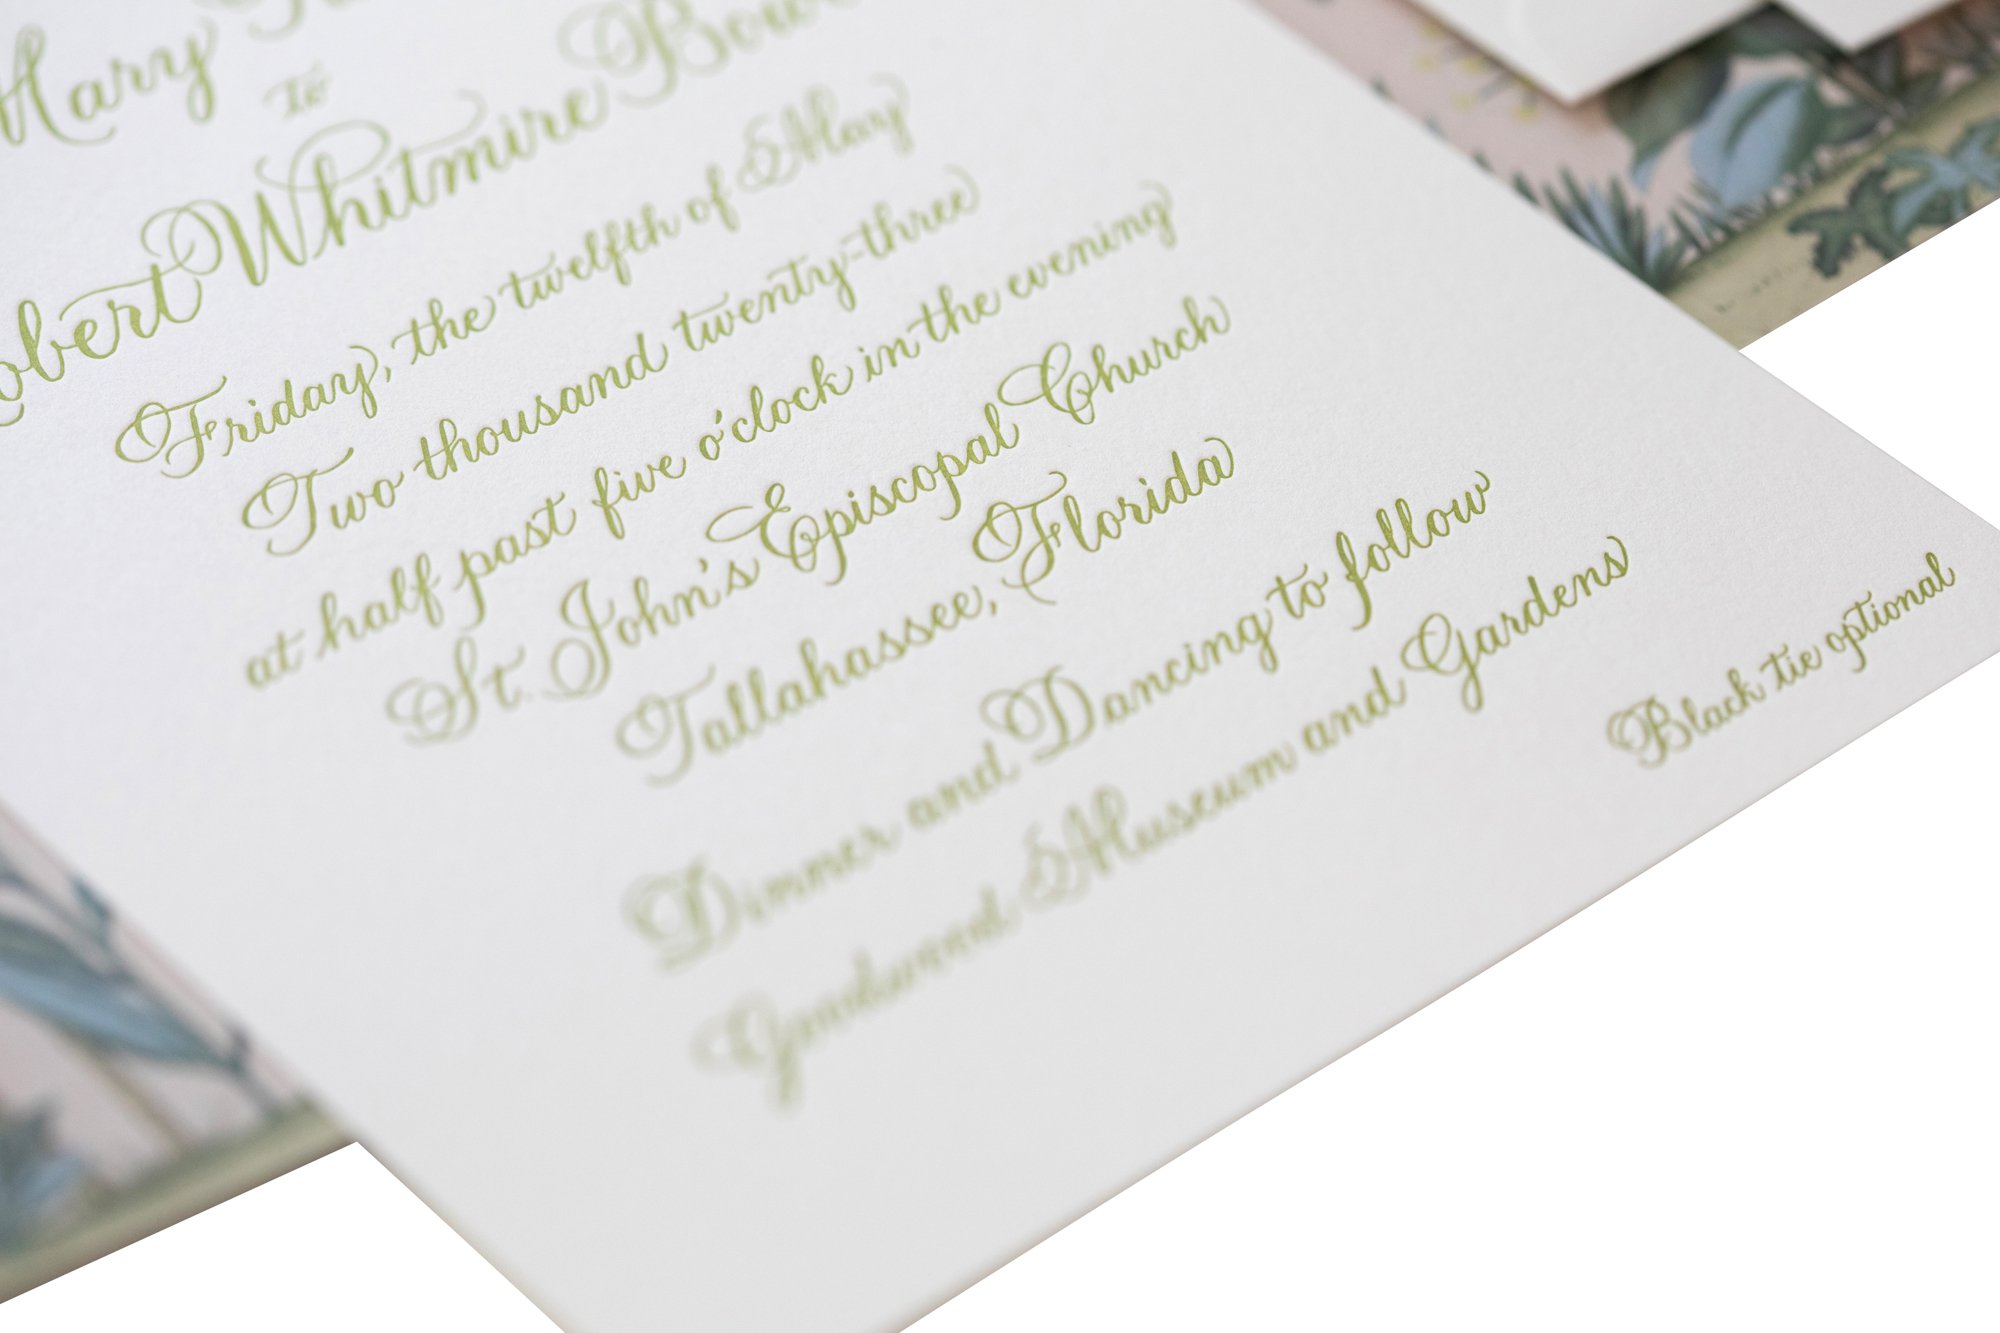 Mary
to
Robert Whitmire
Friday, the twelfth of May
Two thousand twenty-three
at half past five o'clock in the evening
St. John's Episcopal Church
Tallahassee, Florida
Dinner and Dancing to follow
Goodwood Museum and Gardens
Black tie optional